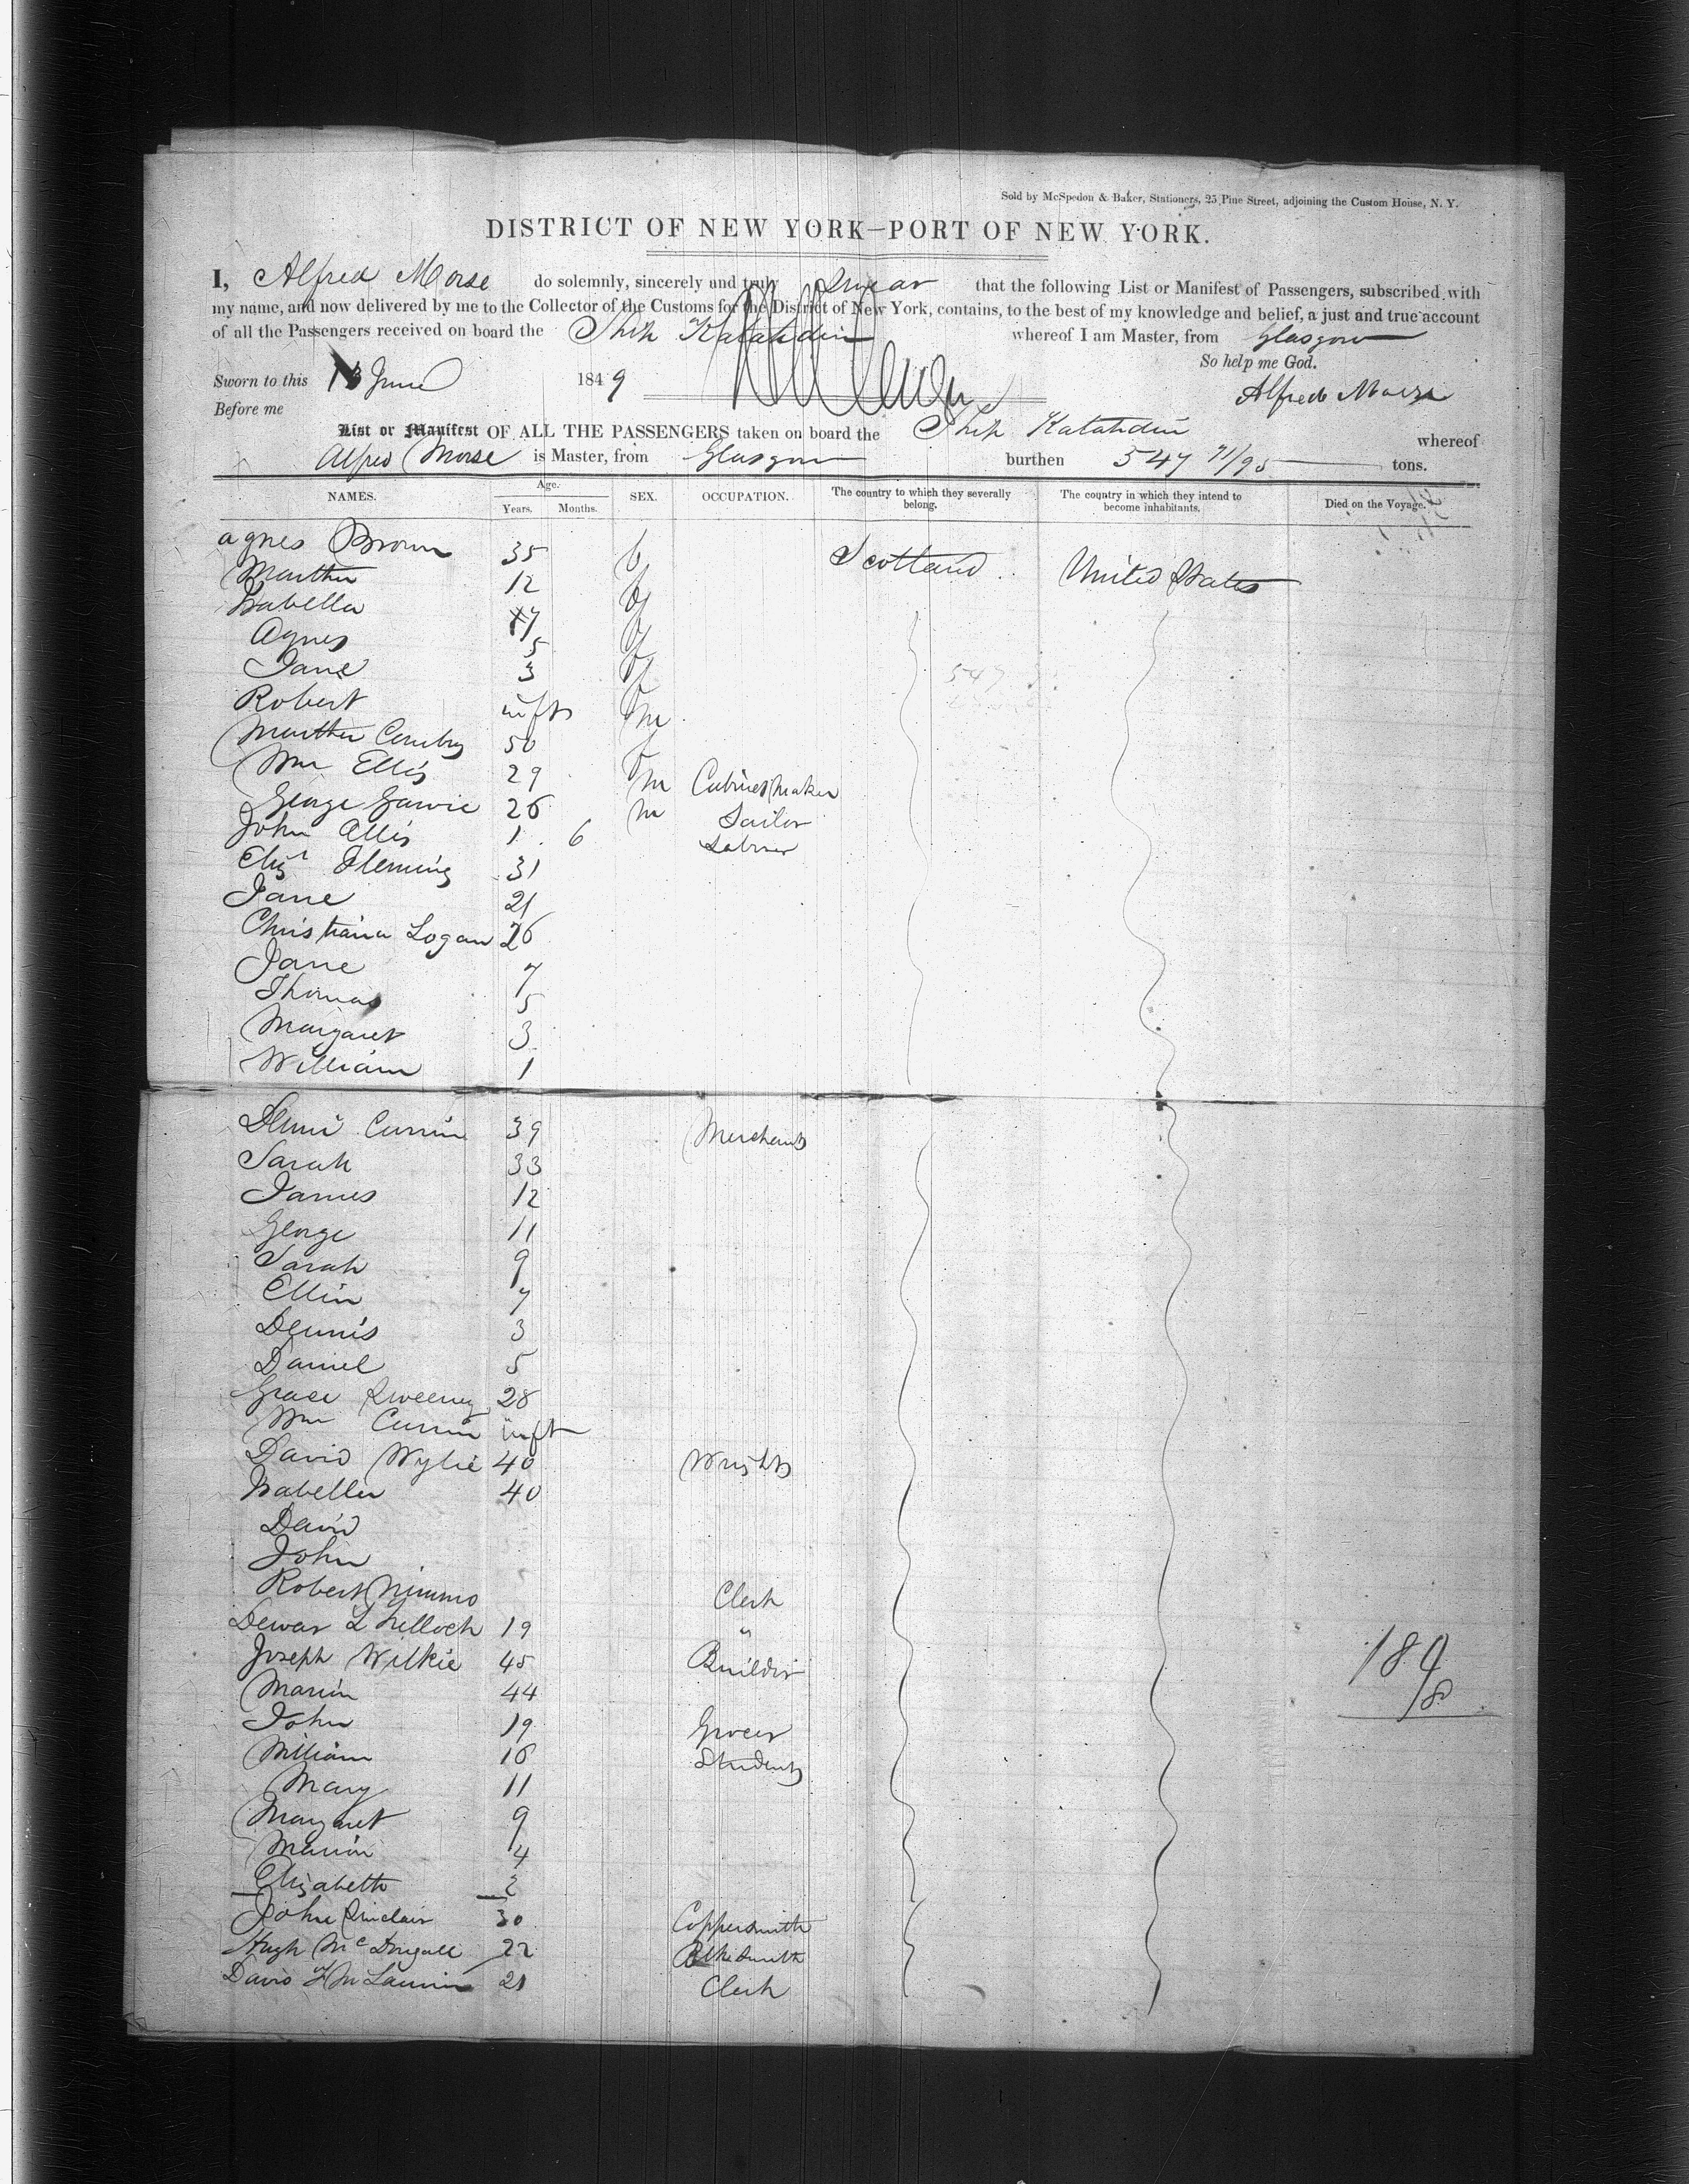 Sold by McSpedon & Baker, Stationers, 25 Pine Street, adjoining the Custom House, N. Y.
DISTRICT OF NEW YORK—PORT OF NEW YORK.
I, Alfred Morse do solemnly, sincerely and truly Swear that the following List or Manifest of Passengers, subscribed with
my name, and now delivered by me to the Collector of the Customs for the District of New York, contains, to the best of my knowledge and belief, a just and true account
of all the Passengers received on board the Ship Katahdin whereof I am Master, from Glasgow
So help me God.
Sworn to this 13 June 1849
Alfred Morse
Before me
List or Manifest OF ALL THE PASSENGERS taken on board the Ship Katahdin whereof
Alfred Morse is Master, from Glasgow burthen 547 71/95 tons.
NAMES. Age. Years. Months. SEX. OCCUPATION. The country to which they severally belong. The country in which they intend to become inhabitants. Died on the Voyage.
Agnes Brown 35 f Scotland United States
Martha 12 f
Isabella 7 f
Agnes 5 f
Jane 3 f
Robert inft m
Martha 50 f
Wm Ellis 29 m Cabinet Maker
George Garvie 26 m Sailor
John Allis 1 6 Labourer
Elizt Fleming 31
Jane 21
Christiana Logan 26
Jane 7
Thomas 5
Margaret 3
William 1
Currin 39 Merchant
Sarah 33
James 12
George 11
Sarah 9
Ellin 7
Dennis 3
Daniel 5
Grace Sweeney 28
Wm Currin inft
David Wylie 40 Wright
Isabella 40
David
John
Robert Nimmo Clerk
Dewar L 19 "
Joseph Wilkie 45 Builder
Marion 44
John 19 Grocer
William 16 Student
Mary 11
Margaret 9
Marion 4
Elizabeth 2
John Sinclair 30 Coppersmith
Hugh McDougall 22
David 21 Clerk